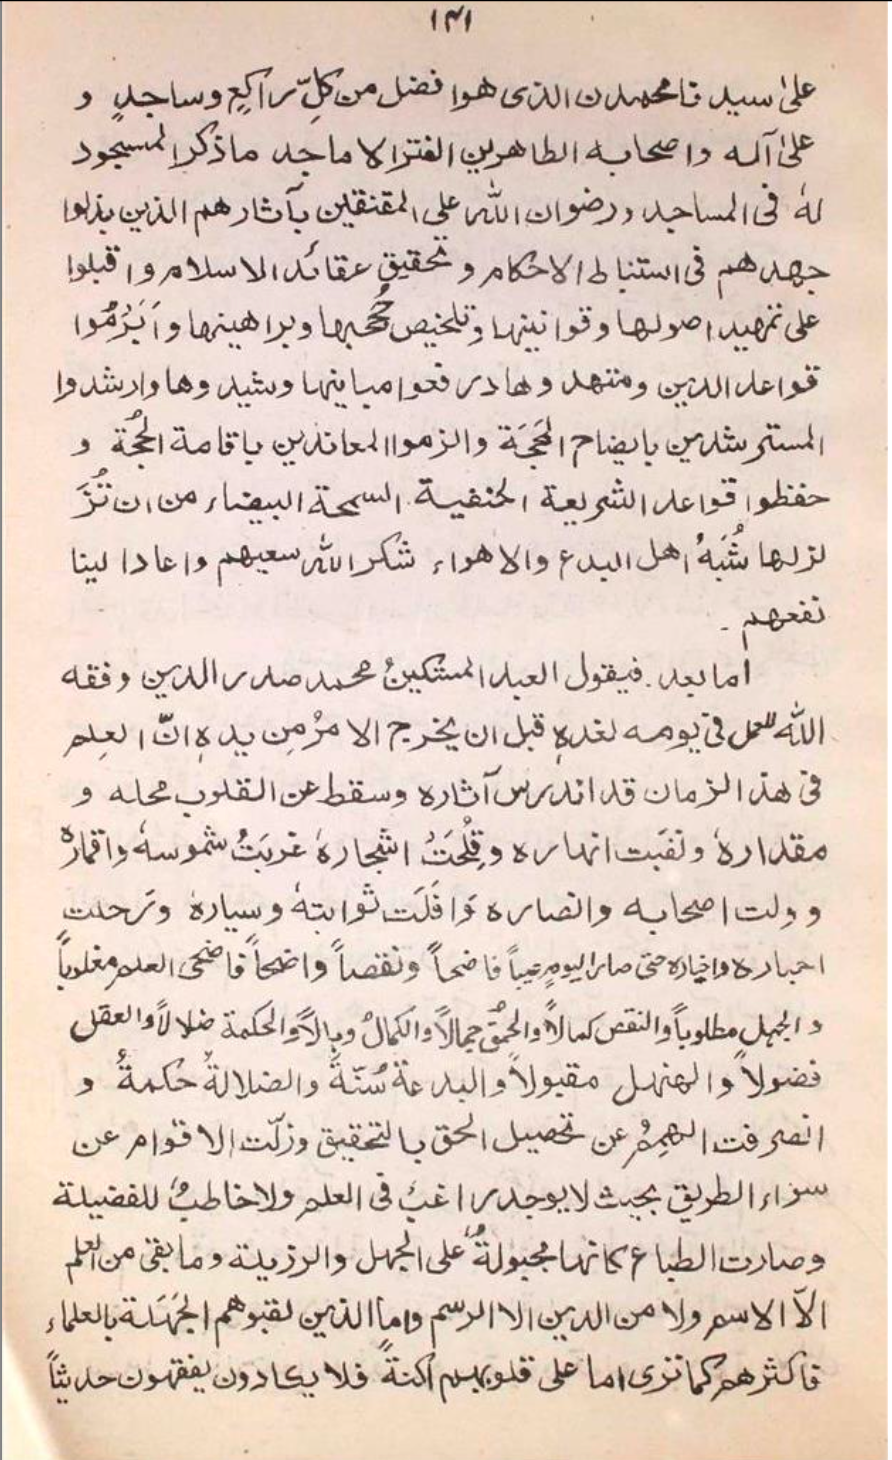 ١٤١
علیٰ سیدنا محمدن الذی هوا فضل من کلِّ راکعٍ وساجدٍ و
علیٰ آله واصحابه الطاهرین الفتر الاماجد ماذکر المسجود
لهٗ فی المساجد ورضوان الله علی المقتفین بآثارهم الذین بذلوا
جهدهم فی استنباط الاحکام وتحقیق عقائد الاسلام واقبلوا
علی تمهید اصولها وقوانینها وتلخیص حُججها وبراهینها واَبَرُموا
قواعد الدین ومنتهد وهادر فعوا مبانیها وشید وها وارشدوا
المسترشدین بایضاح المَحَجَة والزموا المعاندین باقامة الحُجّة و
حفظوا قواعد الشریعة الحنفیة السمحة البیضاء من ان تُزَ
لزلها شُبَهُ اهل البدع والاهواء شکر الله سعیهم واعادا لینا
نفعهم ۔
اما بعد ۔ فیقول العبد المسکینُ محمد صدر الدین وفقه
الله للعمل فی یومه لغدہٖ قبل ان یخرج الامرُ مِن یدہٖ انّ العلم
فی هذ الزمان قد اندرس آثاره وسقط عن القلوب محله و
مقدارهٗ ونضَبت انهاره وقُلِحَتْ اشجارهٗ غربَتُ شموسهٗ واقمارهٗ
وولت اصحابه وانصاره وَافَلَت ثوابتهٗ وسیارهٗ وترحلت
احبارہ واخیارہ حتی صار الیوم عیباً فاضحاً ونقصاً واضحاً فاضحی العلم مغلوباً
والجهل مطلوباً والنقص کمالاً والحمُق جمالاً والکمالُ وبالاً والحکمة ضلالاً والعقل
فضولاً والهزل مقبولاً والبدعة سُنّةً والضلالةُ حکمةً و
انصرفت الهِممُ عن تحصیل الحق بالتحقیق وزلّت الاقوام عن
سواء الطریق بحیث لایوجد راغبٌ فی العلم ولاخاطبٌ للفضیلة
وصارت الطباع کانها مجبولةٌ علی الجهل والرزیلة ومابقی من العلم
الاّ الاسم ولا من الدین الا الرسم واما الذین لقبوهم الجَهَلة بالعلماء
فاکثرهم کماتری اما علی قلوبهم اکنةً فلا یکادون یفقهون حدیثاً